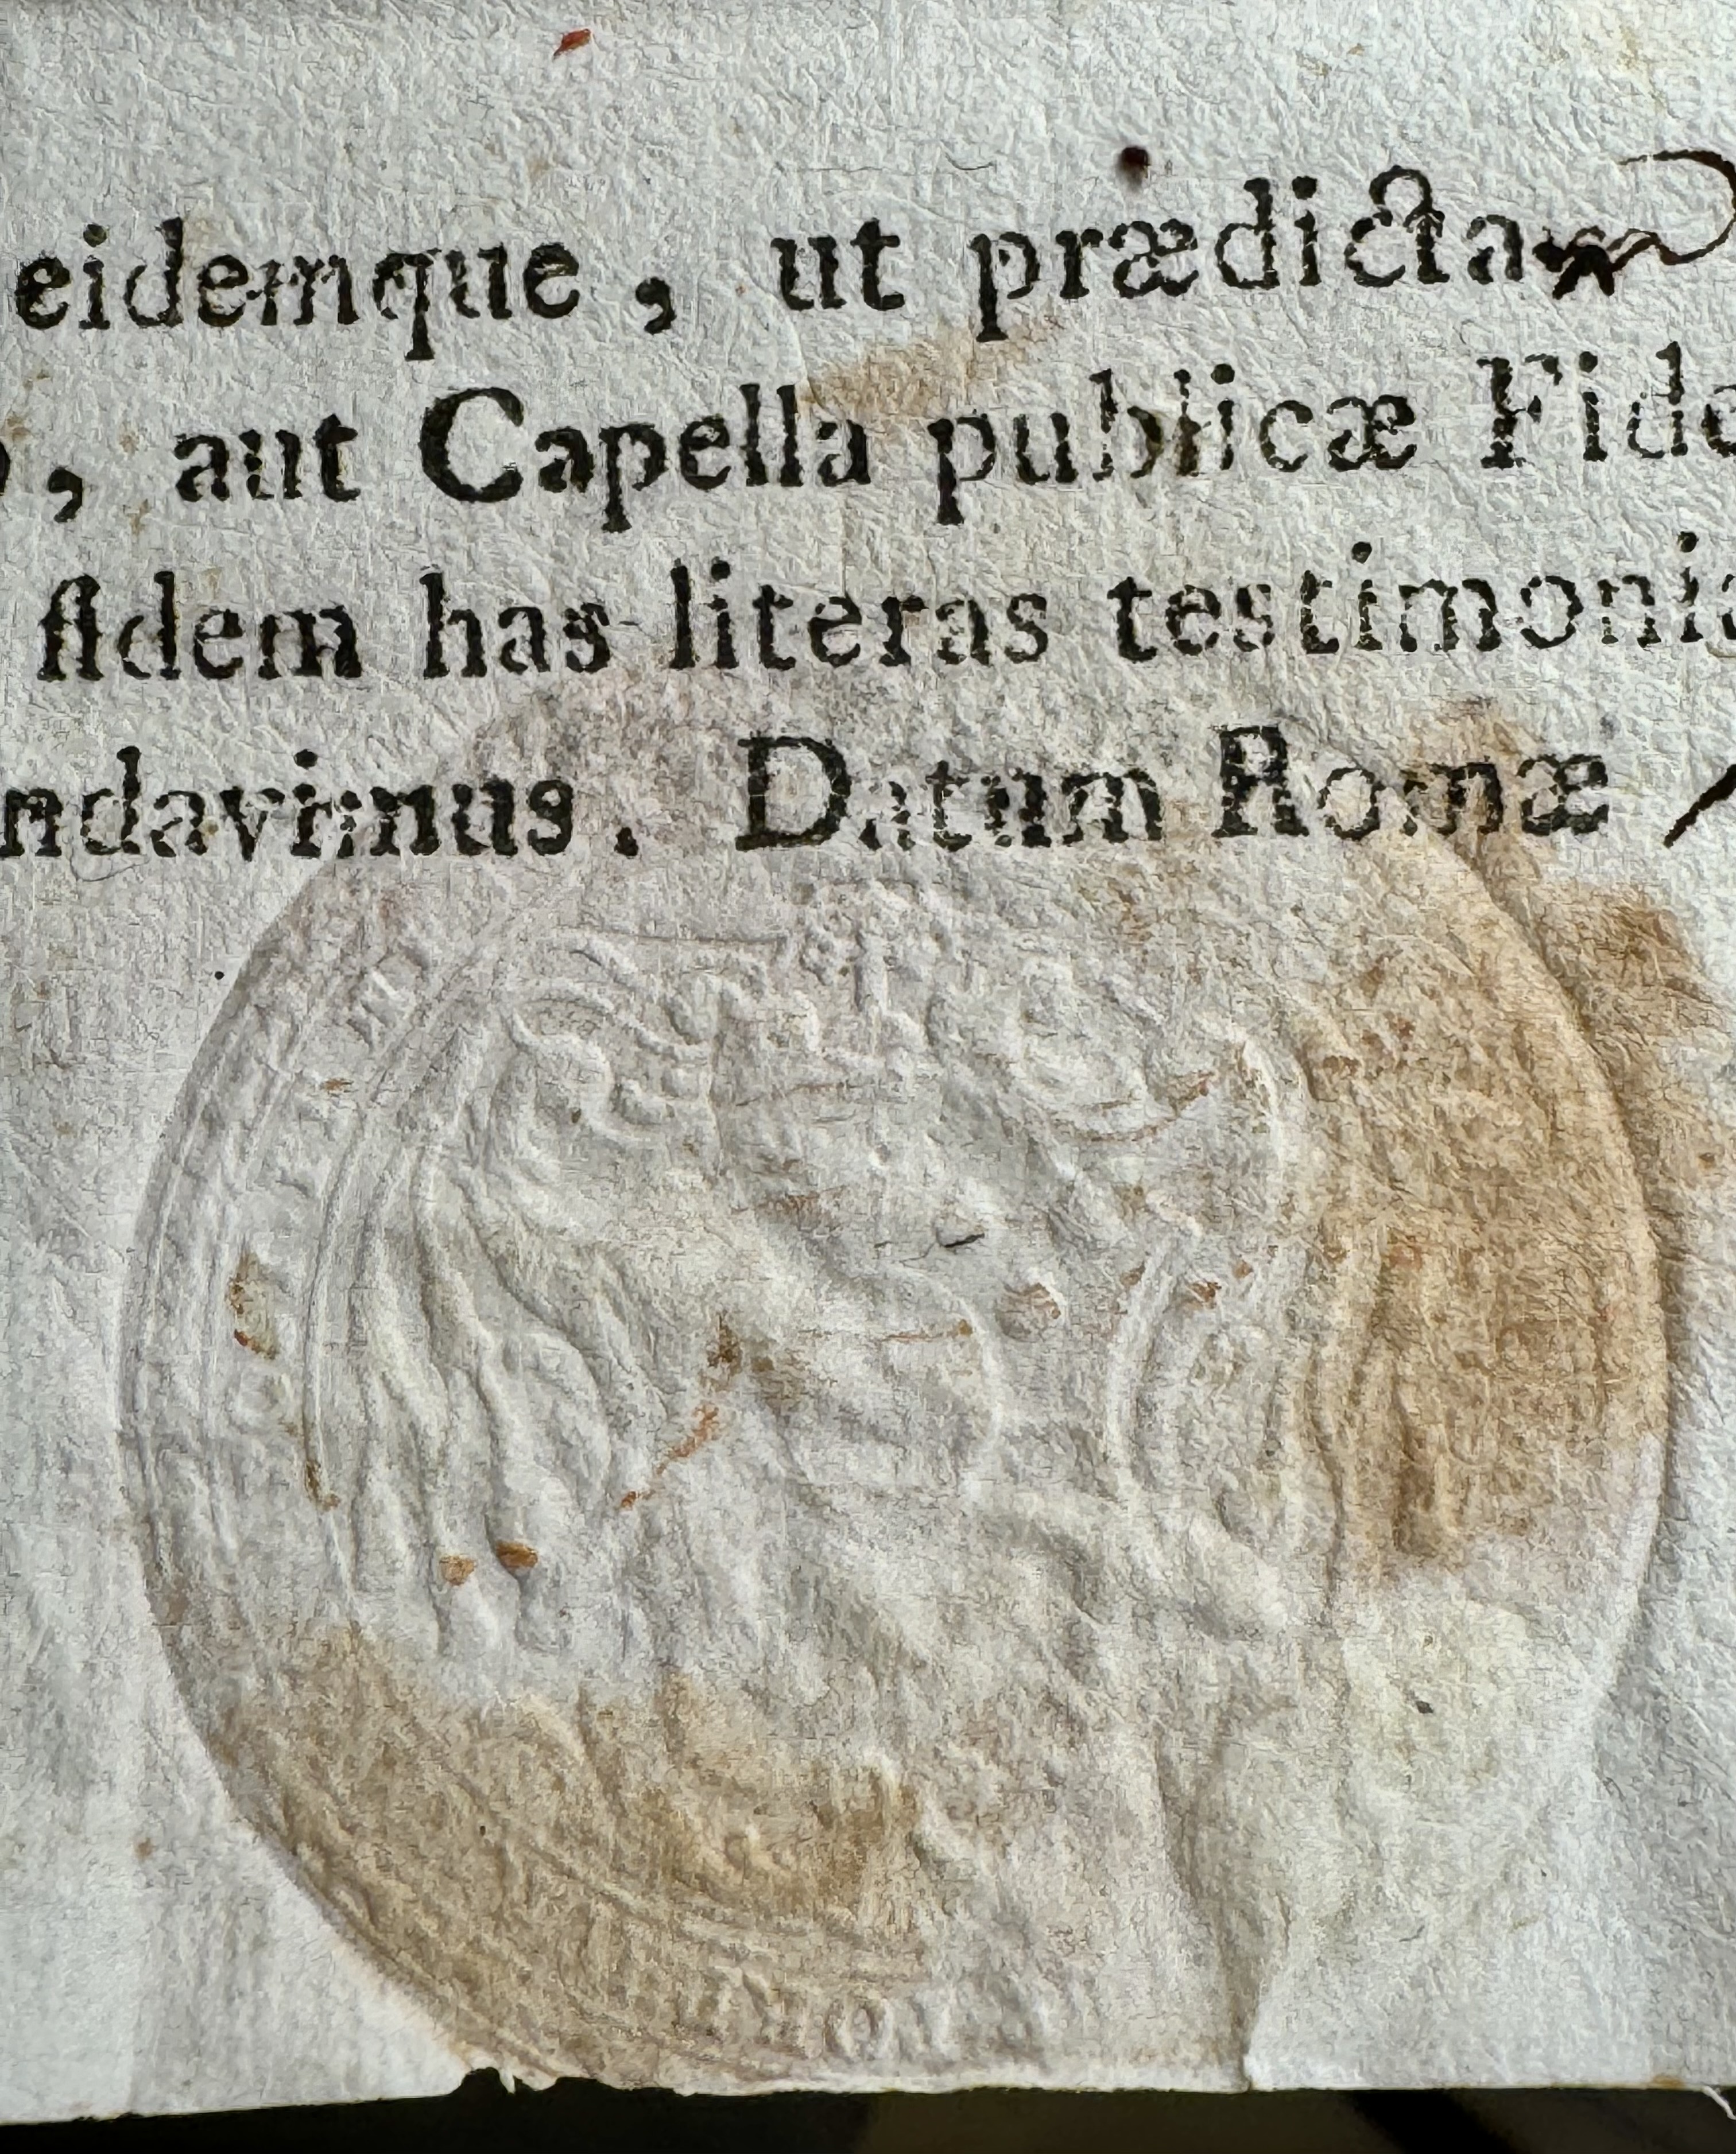 eidemque, ut prædicta
, aut Capella publicæ Fide
fidem has literas testimonia
ndavimus. Datum Romæ